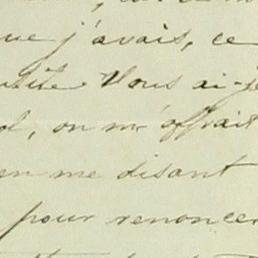 que j'avais, ce
Vous ai-je
on m'offrait
en me disant
pour renoncer